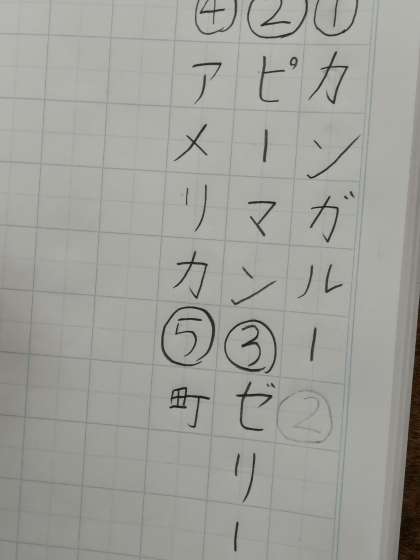 ①カンガルー②
②ピーマン③ゼリー
④アメリカ⑤町